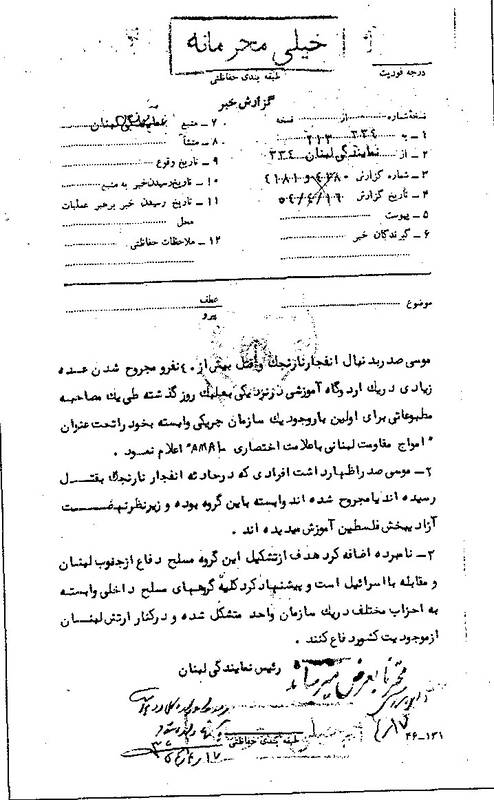 خیلی محرمانه
طبقه بندی حفاظتی
درجه فوریت
گزارش خبر
نسخه شماره از نسخه
۱ـ به ۳۳٤ ۲۱۳
۲ـ از نمایندگی لبنان ۳۳٤
۳ـ شماره گزارش ٤۲۸۰ و ٤۱۸۱
٤ـ تاریخ گزارش ٥٤/٤/۱٦
۵ـ پیوست
۶ـ گیرندگان خبر
۷ـ منبع نمایندگی لبنان
۸ـ منشأ
۹ـ تاریخ وقوع
۱۰ـ تاریخ رسیدن خبر به منبع
۱۱ـ تاریخ رسیدن خبر برهبر عملیات
محل
۱۲ـ ملاحظات حفاظتی
موضوع
عطف
پیرو
موسی صدر بدنبال انفجار نارنجک و قتل بیش از ٤۰ نفر و مجروح شدن عده
زیادی در یک اردوگاه آموزشی در نزدیکی بعلبک روز گذشته طی یک مصاحبه
مطبوعاتی برای اولین بار وجود یک سازمان چریکی وابسته بخود را تحت عنوان
"امواج مقاومت لبنانی با علامت اختصاری AMAL" اعلام نمود.
۲ـ موسی صدر اظهار داشت افرادی که در حادثه انفجار نارنجک بقتل
رسیده اند یا مجروح شده اند وابسته باین گروه بوده و زیر نظر نهضت
آزادیبخش فلسطین آموزش میدیده اند.
۳ـ نامبرده اضافه کرد هدف از تشکیل این گروه مسلح دفاع از جنوب لبنان
و مقابله با اسرائیل است و پیشنهاد کرد کلیه گروههای مسلح داخلی وابسته
به احزاب مختلف در یک سازمان واحد متشکل شده و در کنار ارتش لبنان
از موجودیت کشور دفاع کنند.
رئیس نمایندگی لبنان
محترماً بعرض میرساند
طبقه بندی حفاظتی
۱۳۱-۴۶